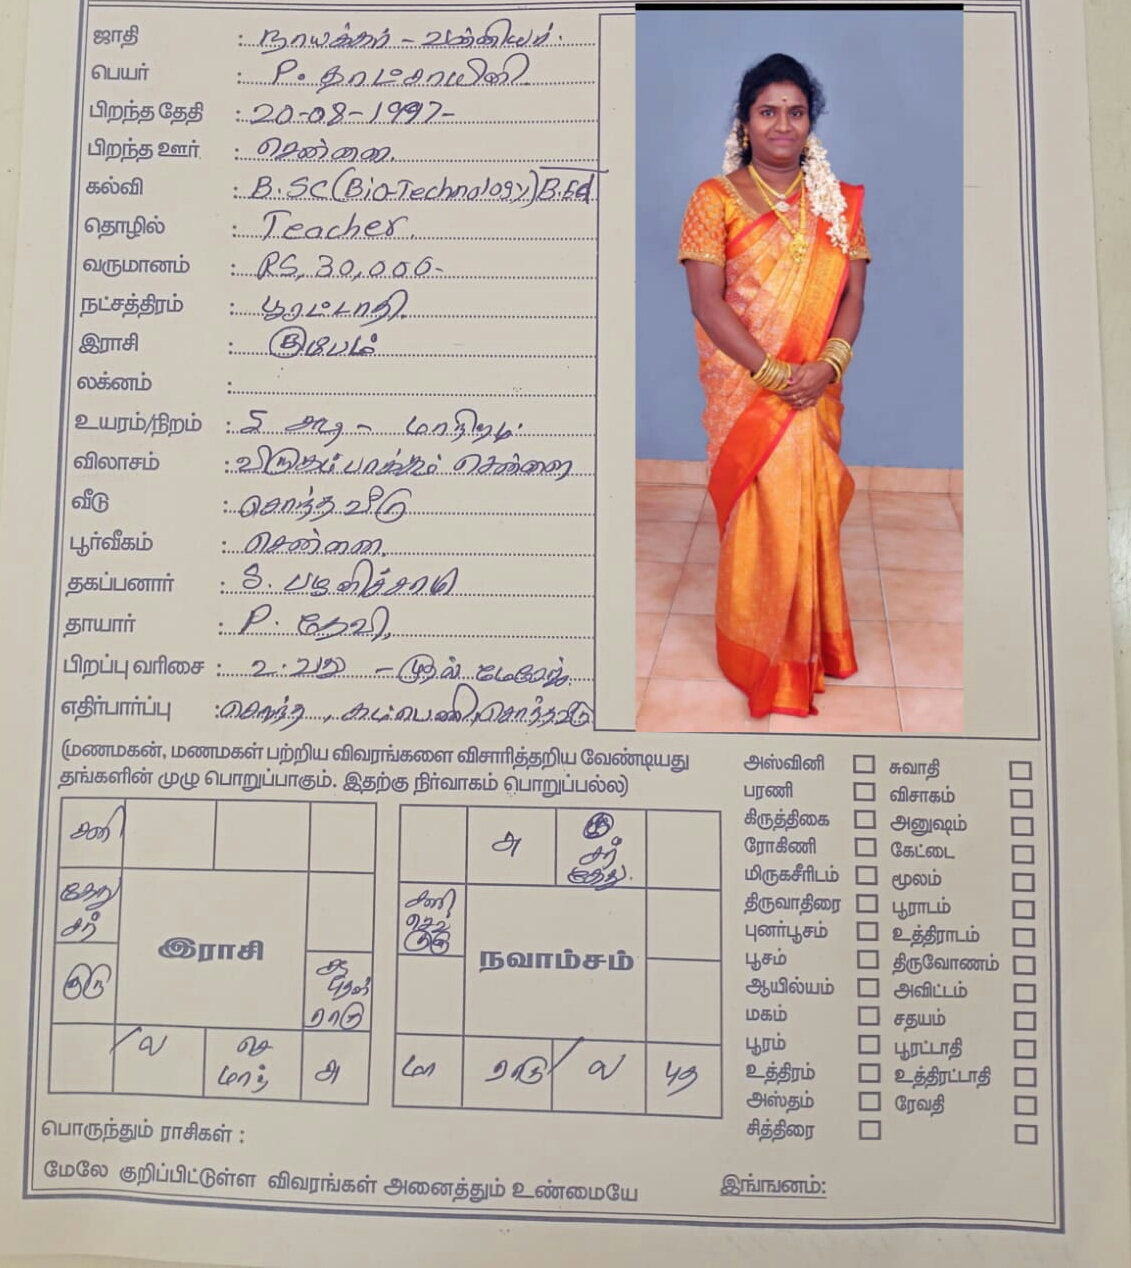 ஜாதி : நாயக்கர் - வன்னியர்.
பெயர் : P. தாட்சாயினி
பிறந்த தேதி : 20-08-1997-
பிறந்த ஊர் : சென்னை.
கல்வி : B.SC(Bio-Technology) B.Ed
தொழில் : Teacher.
வருமானம் : RS, 30,000-
நட்சத்திரம் : பூரட்டாதி.
இராசி : கும்பம்
லக்னம் :
உயரம்/நிறம் : 5 அடி - மாநிறம்
விலாசம் : விருகம்பாக்கம் சென்னை
வீடு : சொந்த வீடு
பூர்வீகம் : சென்னை.
தகப்பனார் : S. பழனிச்சாமி
தாயார் : P. தேவி,
பிறப்பு வரிசை : 2-வது - முதல் மேரேஜ்.
எதிர்பார்ப்பு : சொந்த, கம்பெனி, சொந்தவீடு
(மணமகன், மணமகள் பற்றிய விவரங்களை விசாரித்தறிய வேண்டியது
தங்களின் முழு பொறுப்பாகும். இதற்கு நிர்வாகம் பொறுப்பல்ல)
சனி
கேது
சூரி
குரு
இராசி
புதன்
ராகு
ல
செ
மாந்
அ
அ
கேது.
சனி
குரு
நவாம்சம்
மா
ராகு
ல
புத
அஸ்வினி சுவாதி
பரணி விசாகம்
கிருத்திகை அனுஷம்
ரோகிணி கேட்டை
மிருகசீரிடம் மூலம்
திருவாதிரை பூராடம்
புனர்பூசம் உத்திராடம்
பூசம் திருவோணம்
ஆயில்யம் அவிட்டம்
மகம் சதயம்
பூரம் பூரட்டாதி
உத்திரம் உத்திரட்டாதி
அஸ்தம் ரேவதி
சித்திரை
பொருந்தும் ராசிகள் :
மேலே குறிப்பிட்டுள்ள விவரங்கள் அனைத்தும் உண்மையே
இங்ஙனம்: